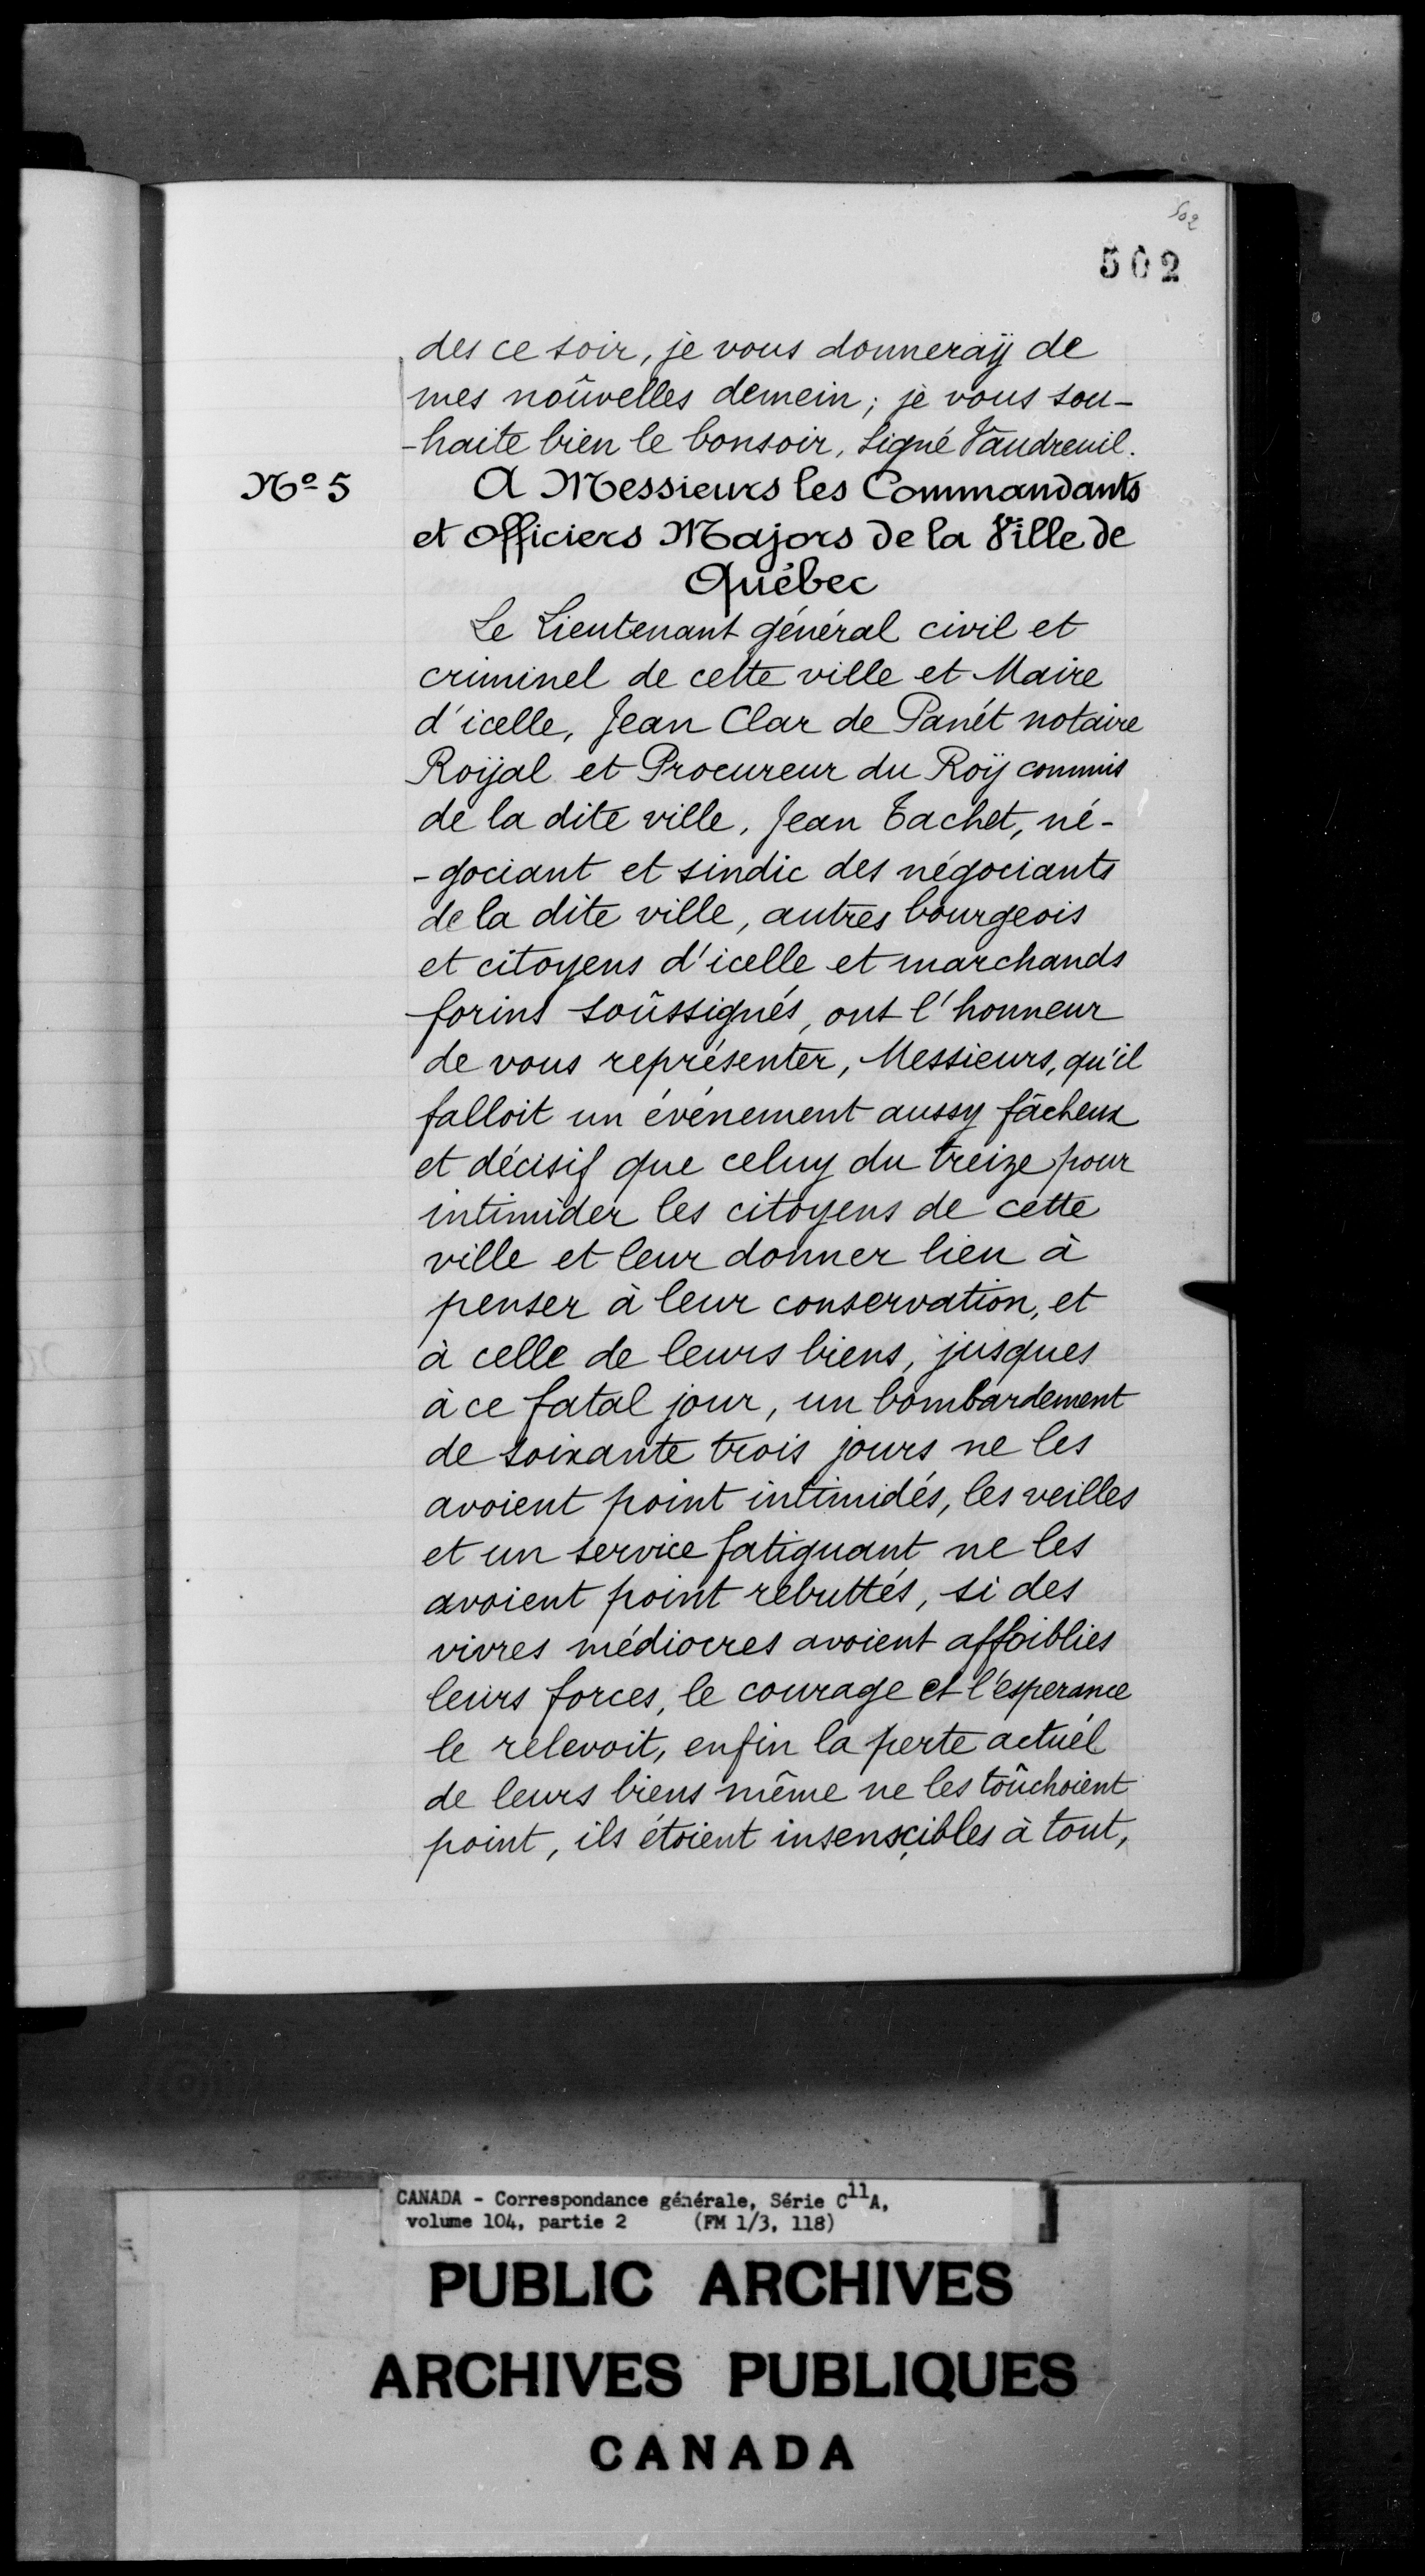 502
502
des ce soir, je vous donneraÿ de
mes noûvelles demein; je vous sou-
-haite bien le bonsoir, signé Vaudreuil.
Nº 5
A Messieurs les Commandants
et Officiers Majors de la Ville de
Québec
Le Lieutenant général civil et
criminel de cette ville et Maire
d'icelle, Jean Clar de Panét notaire
Roÿal et Procureur du Roÿ commis
de la dite ville, Jean Tachet, né-
-gociant et sindic des négociants
de la dite ville, autres bourgeois
et citoyens d'icelle et marchands
forins soûssignés, ont l'honneur
de vous représenter, Messieurs, qu'il
falloit un événement aussy fâcheux
et décisif que celuy du treize pour
intimider les citoyens de cette
ville et leur donner lieu à
penser à leur conservation, et
à celle de leurs biens, jusques
à ce fatal jour, un bombardement
de soixante trois jours ne les
avoient point intimidés, les veilles
et un service fatiguant ne les
avoient point rebuttés, si des
vivres médiocres avoient affoiblies
leurs forces, le courage et l'esperance
le relevoit, enfin la perte actuél
de leurs biens même ne les toûchoient
point, ils étoient insensçibles à tout,
CANADA - Correspondance générale, Série C11A,
volume 104, partie 2 (FM 1/3, 118)
PUBLIC ARCHIVES
ARCHIVES PUBLIQUES
CANADA